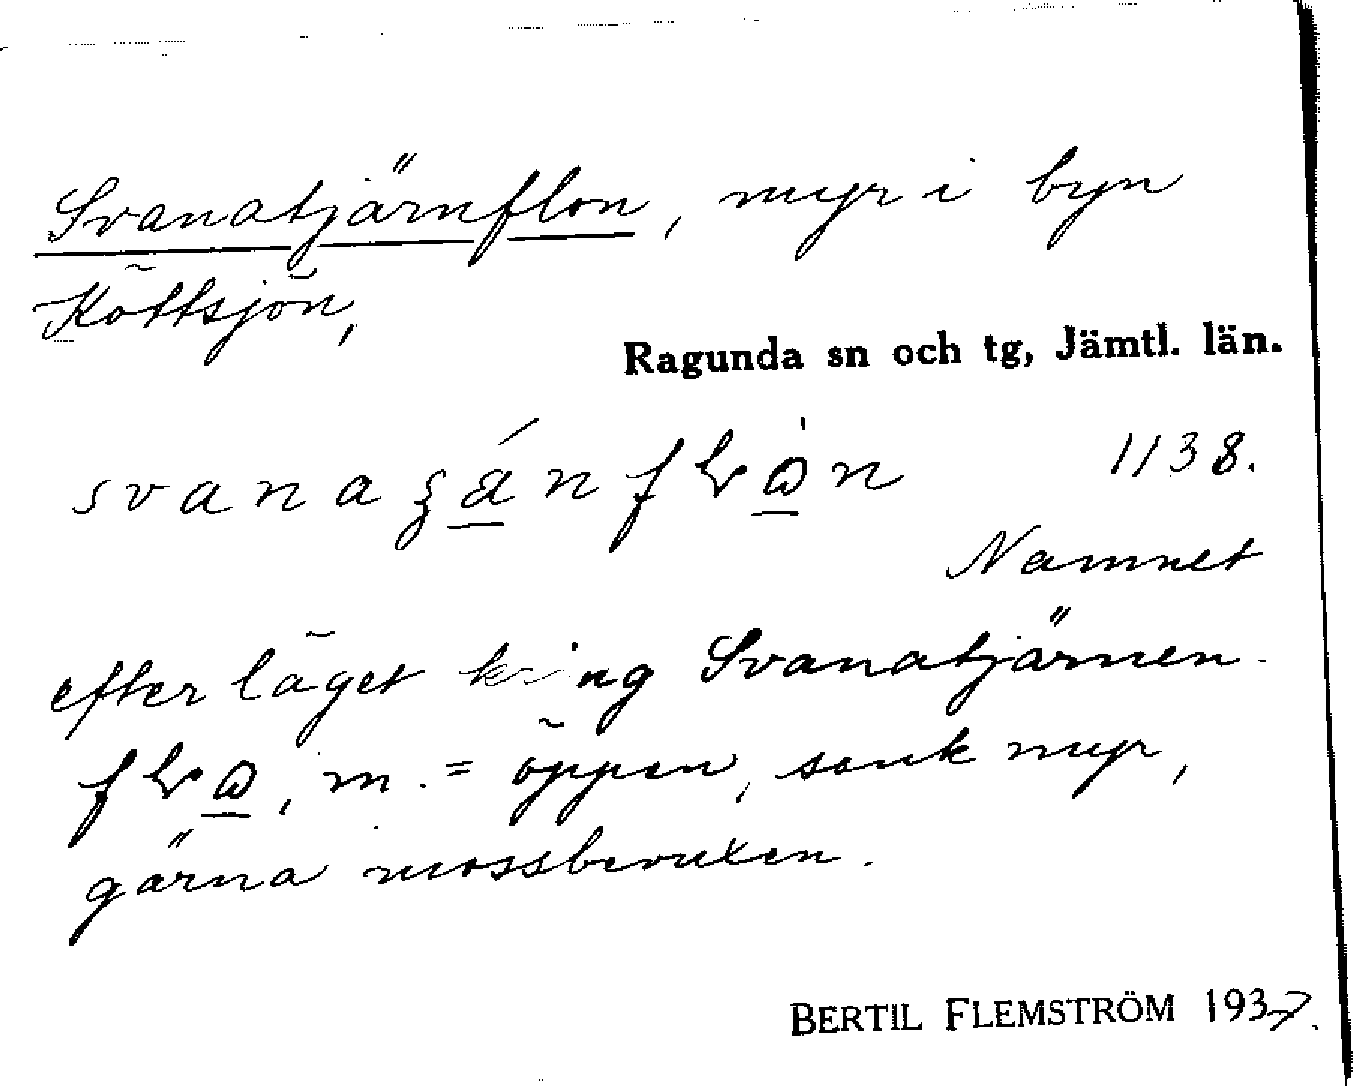 Svanatjärnflon, myr i byn
Köttsjön,
Ragunda sn och tg, Jämtl. län.
1138.
Namnet
efter läget kring Svanatjärnen.
m. = öppen, sank myr,
gärna mossbevuxen.
BERTIL FLEMSTRÖM 1937.